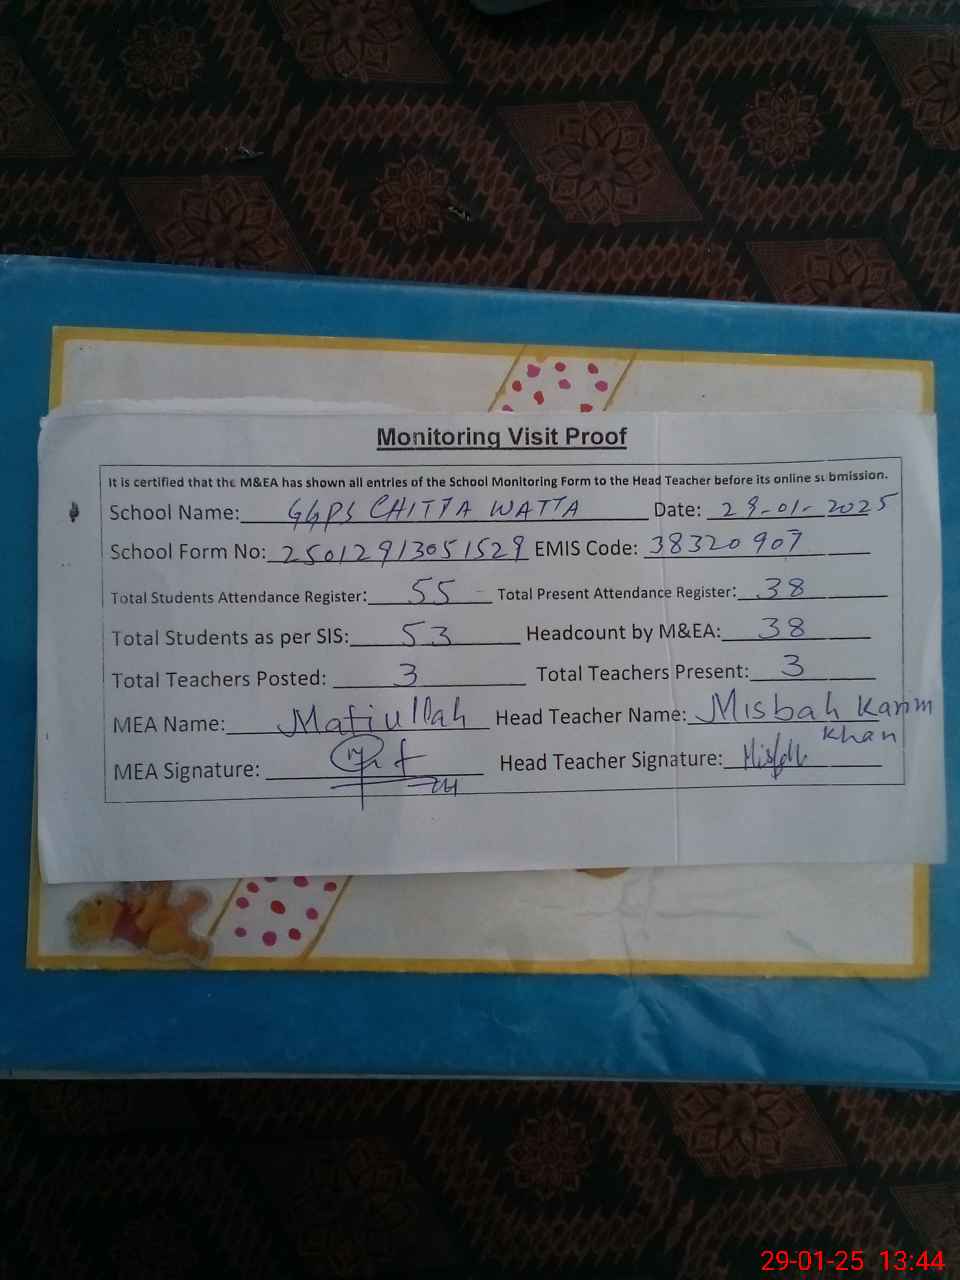 Monitoring Visit Proof
It is certified that the M&EA has shown all entries of the School Monitoring Form to the Head Teacher before its online submission.
School Name: GGPS CHITTA WATTA Date: 29-01-2025
School Form No: 25012913051529 EMIS Code: 38320907
Total Students Attendance Register: 55 Total Present Attendance Register: 38
Total Students as per SIS: 53 Headcount by M&EA: 38
Total Teachers Posted: 3 Total Teachers Present: 3
MEA Name: Matiullah Head Teacher Name: Misbah Karim
Khan
MEA Signature: Head Teacher Signature: Misbah
29-01-25 13:44